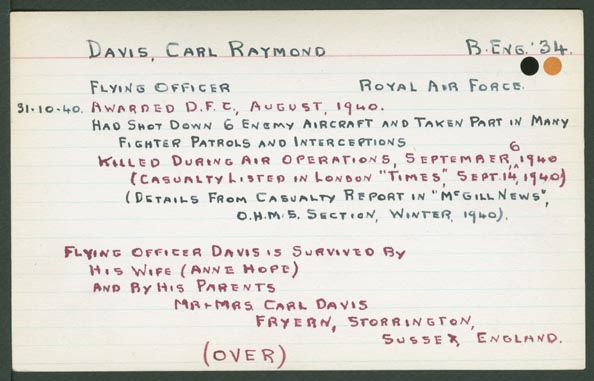 DAVIS, CARL RAYMOND B.ENG.'34.
FLYING OFFICER ROYAL AIR FORCE.
31-10-40. AWARDED D.F.C., AUGUST, 1940.
HAD SHOT DOWN 6 ENEMY AIRCRAFT AND TAKEN PART IN MANY
FIGHTER PATROLS AND INTERCEPTIONS
KILLED DURING AIR OPERATIONS, SEPTEMBER, 6 1940
(CASUALTY LISTED IN LONDON "TIMES", SEPT. 14, 1940)
(DETAILS FROM CASUALTY REPORT IN "MCGILL NEWS",
O.H.M.S. SECTION, WINTER, 1940).
FLYING OFFICER DAVIS IS SURVIVED BY
HIS WIFE (ANNE HOPE)
AND BY HIS PARENTS
MR + MRS CARL DAVIS
FRYERN, STORRINGTON,
SUSSEX, ENGLAND.
(OVER)